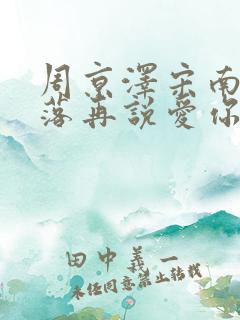 周京澤宋南
落再說愛你
田中義一
未經同意禁止轉載